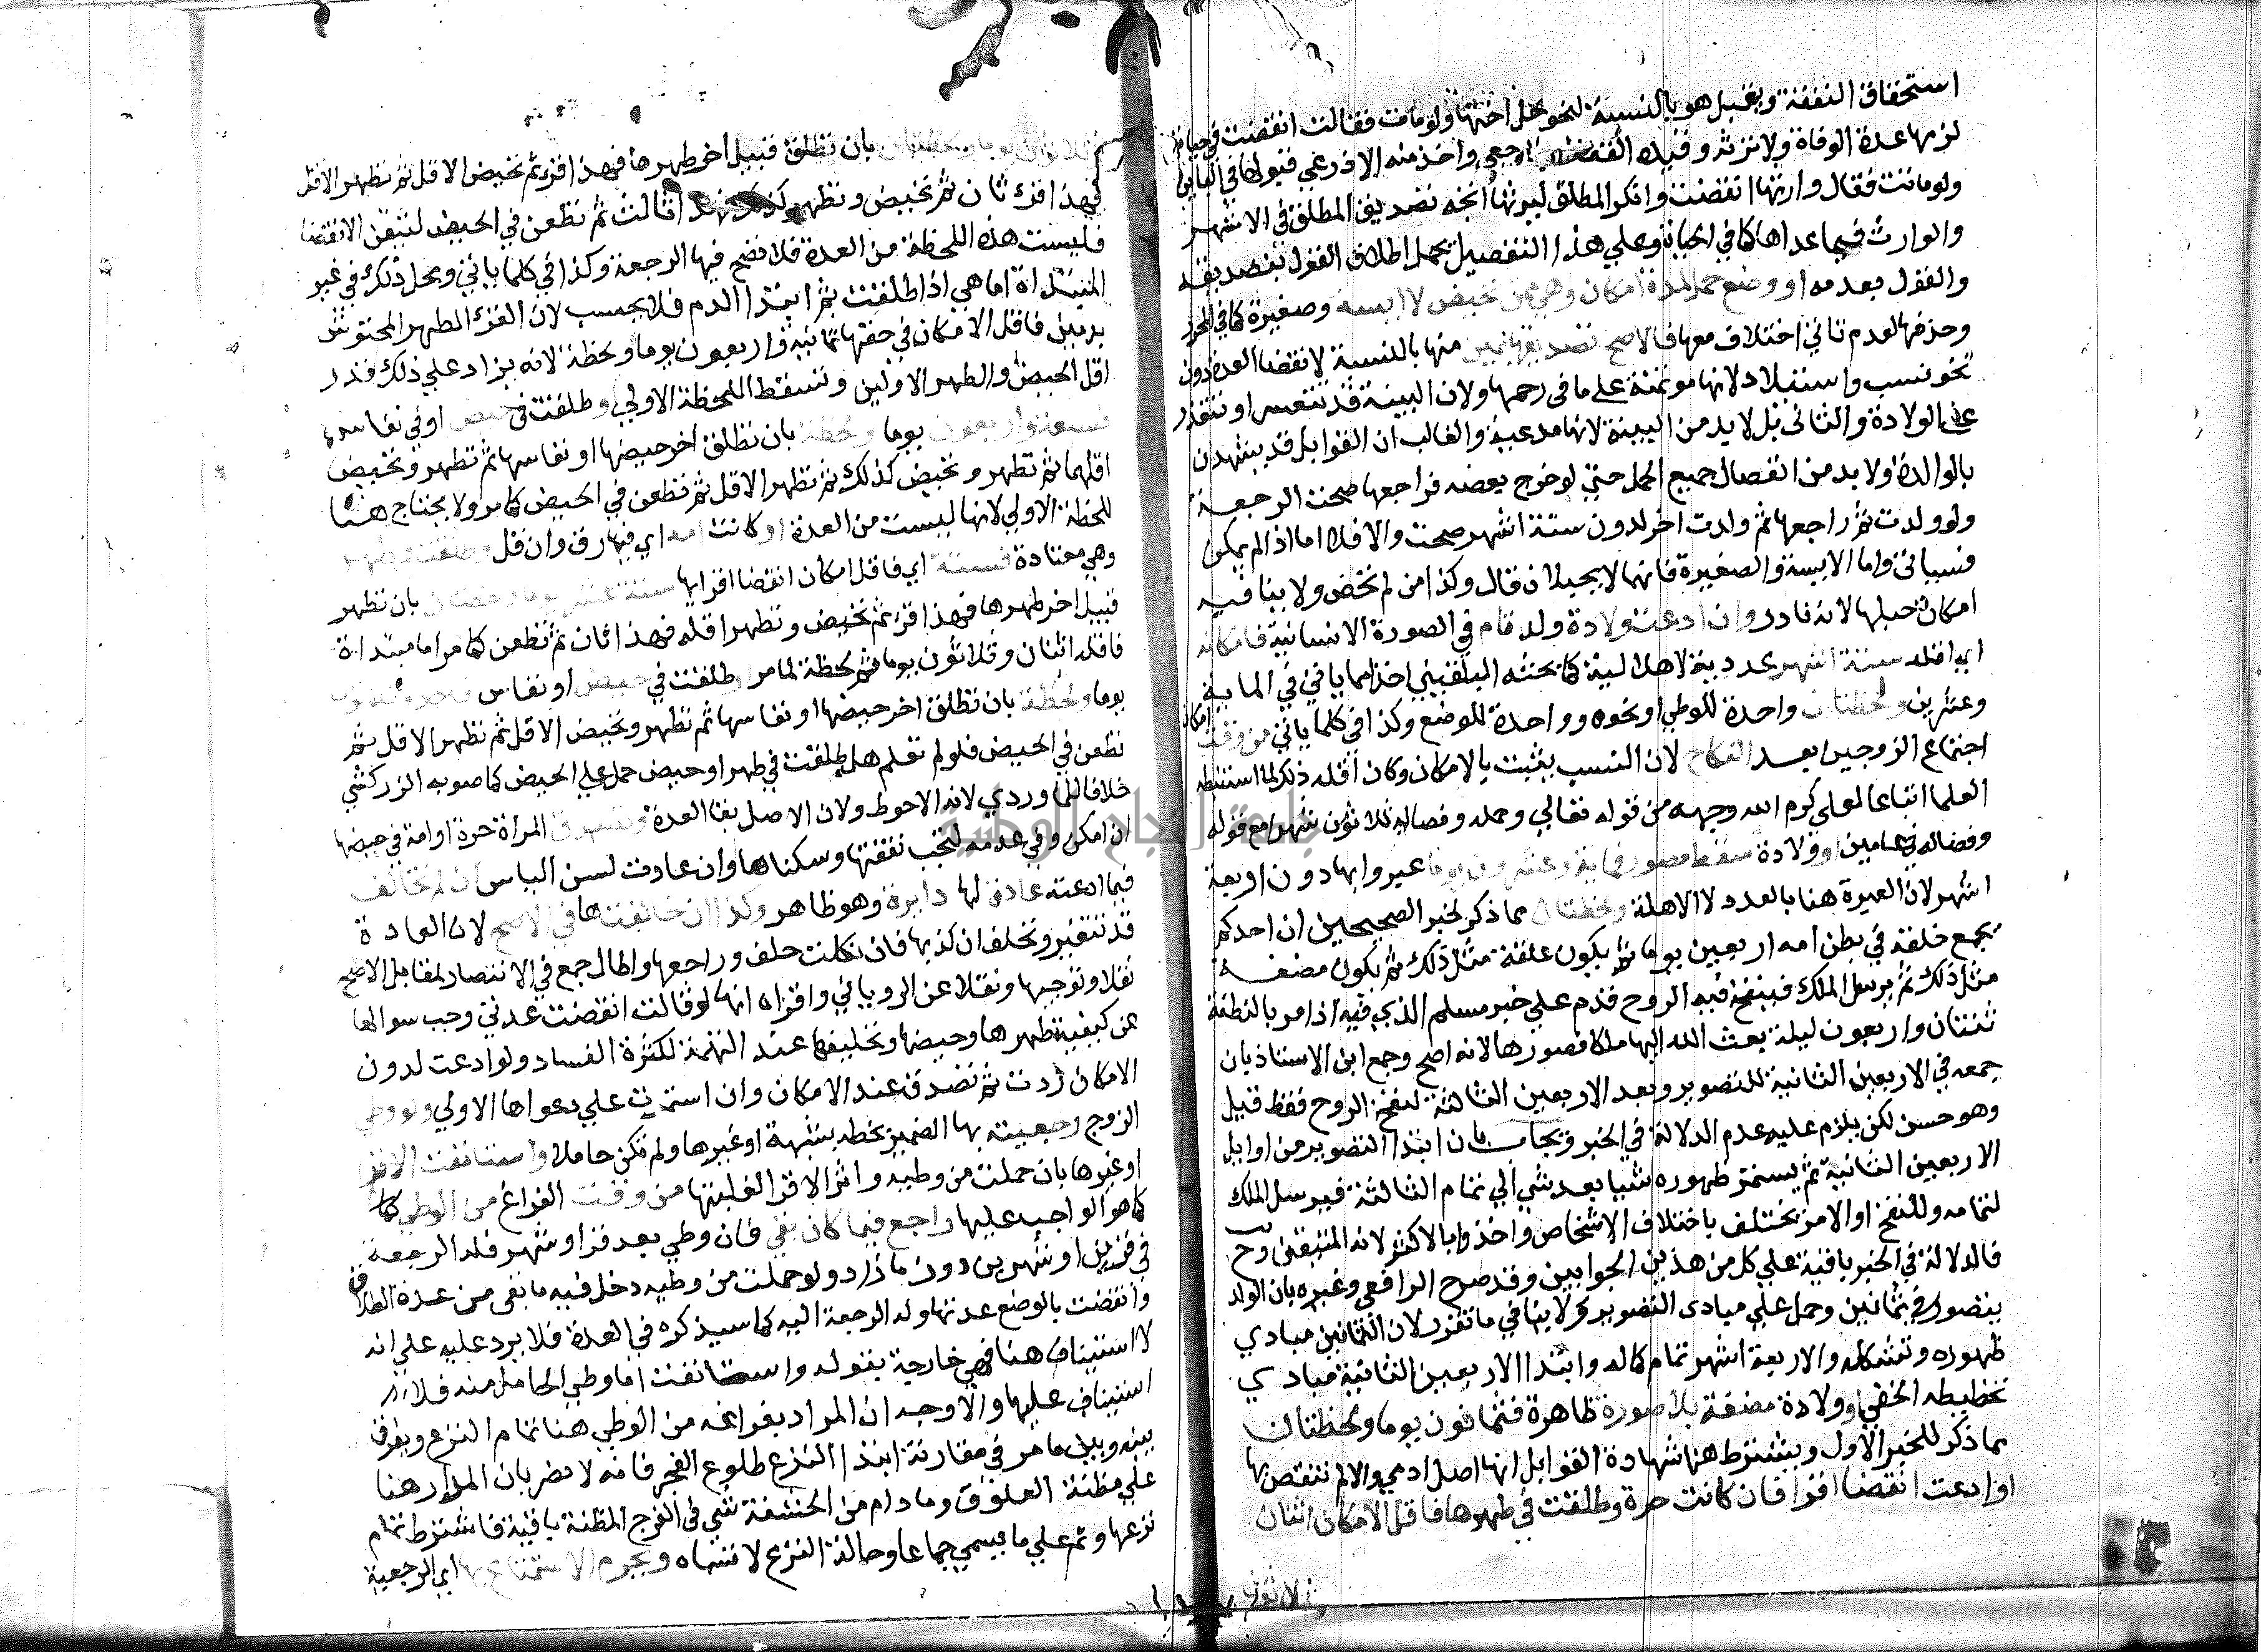 استحقاق النفقة ويقبل هو بالنسبة لنحو حل اختها ولو مات فقالت انقضت في حياته
لزمها عدة الوفاة ولا ترثه وقيده القفال بالرجعي واخذ منه الاذرعي قبولها في الباين
ولو ماتت فقال وارثها انقضت وانكر المطلق ليرثها اتجه تصديق المطلق في الاشهر
والوارث فيما عداها كما في الحياة وعلي هذا التفصيل يحمل اطلاق القول بتصديقه
والقول بعدمه او وضع حمل لمدة امكان وهي ممن تحيض لا ايسة وصغيرة كما في المحرر
وحذفها لعدم تاتي اختلاف معها فالاصح تصديقها بيمين منها بالنسبة لانقضا العدة دون
نحو نسب واستيلاد لانها موتمنة علي ما في رحمها ولان البينة قد تتعسر او تتعذر
علي الولادة والثاني بل لا بد من البينة لانها مدعية والغالب ان القوابل قد يشهدن
بالولادة ولا بد من انفصال جميع الحمل حتي لو خرج بعضه فراجعها صحت الرجعة
ولو ولدت ثم راجعها ثم ولدت اخر لدون ستة اشهر صحت والا فلا اما اذا لم يمكن
فسياتي واما الايسة والصغيرة فانهما لا يحبلان قال وكذا من لم تحض ولا ينافيه
امكان حبلها لانه نادر وان ادعت ولادة ولد تام في الصورة الانسانية فامكانه
اي اقله ستة اشهر عددية لا هلالية كما بحثه البلقيني اخذا مما ياتي في الماية
وعشرين ولحظتان واحدة للوطي او نحوه وواحدة للوضع وكذا في كلما ياتي من وقت امكان
اجتماع الزوجين بعد النكاح لان النسب يثبت بالامكان وكان اقله ذلك لما استنبطه
العلما اتباعا لعلي كرم الله وجهه من قوله تعالي وحمله وفصاله ثلاثون شهرا مع قوله
وفصاله في عامين او ولادة سقط مصور فماية وعشرون يوما عبر وا بها دون اربعة
اشهر لان العبرة هنا بالعدد لا الاهلة ولحظتان مما ذكر لخبر الصحيحين ان احدكم
يجمع خلقه في بطن امه اربعين يوما ثم يكون علقة مثل ذلك ثم يكون مضغة
مثل ذلك ثم يرسل الملك فينفخ فيه الروح قدم علي خبر مسلم الذي فيه اذا مر بالنطفة
ثنتان واربعون ليلة بعث الله اليها ملكا فصورها لانه اصح وجمع ابن الاستاذ بان
جمعه في الاربعين الثانية للتصوير وبعد الاربعين الثالثة لنفخ الروح فقط قيل
وهو حسن لكن يلزم عليه عدم الدلالة في الخبر ويجاب بان ابتدا التصوير من اوايل
الاربعين الثانية ثم يستمر ظهوره شيا بعد شي الي تمام الثالثة فيرسل الملك
لتمامه وللنفخ او الامر يختلف باختلاف الاشخاص واخذوا بالاكثر لانه المتيقن وح
فالدلالة في الخبر باقية علي كل من هذين الجوابين وقد صرح الرافعي وغيره بان الولد
يتصور في ثمانين وحمل علي مبادي التصوير ولا ينافي ما تقرر لان الثمانين مبادي
ظهوره وتشكله والاربعة اشهر تمام كماله وابتدا الاربعين الثانية مبادي
تخطيطه الخفي او ولادة مضغة بلا صورة ظاهرة فثمانون يوما ولحظتان
مما ذكر للخبر الاول ويشترط هنا شهادة القوابل انها اصل ادمي والا لم تنقض بها
او ادعت انقضا اقرا فان كانت حرة وطلقت في طهرها فاقل الامكان اثنان
وثلاثون
وثلاثون يوما ولحظتان بان تطلق قبيل اخر طهرها فهذا قرء ثم تحيض الاقل ثم تطهر الاقل
فهذا قرء ثان ثم تحيض وتطهر كذلك فهذا ثالث ثم تطعن في الحيض لتيقن الانقضا
فليست هذه اللحظة من العدة فلا تصح فيها الرجعة وكذا في كلما ياتي ومحل ذلك في غير
المبتداة اما هي اذا طلقت ثم ابتدا الدم فلا يحسب لان القرء الطهر المحتوش
بدمين فاقل الامكان في حقها ثمانية واربعون يوما ولحظة لانه يزاد علي ذلك قدر
اقل الحيض والطهر الاولين وتسقط اللحظة الاولي او طلقت في حيض او في نفاس
فسبعة واربعون يوما ولحظة بان تطلق اخر حيضها او نفاسها ثم تطهر وتحيض
اقلهما ثم تطهر وتحيض كذلك ثم تطهر الاقل ثم تطعن في الحيض كما مر ولا يحتاج هنا
للحظة الاولي لانها ليست من العدة او كانت امة اي فيها رق وان قل وطلقت في طهر
وهي معتادة فستة اي فاقل امكان انقضا اقرايها ستة عشر يوما ولحظتان بان تطهر
قبيل اخر طهرها فهذا قرء ثم تحيض وتطهر اقله فهذا ثان ثم تطعن كما مر اما مبتداة
فاقله اثنان وثلاثون يوما ولحظة لما مر او طلقت في حيض او نفاس فاحد وثلاثون
يوما ولحظة بان تطلق اخر حيضها او نفاسها ثم تطهر وتحيض الاقل ثم تطهر الاقل ثم
تطعن في الحيض فلو لم تعلم هل طلقت في طهر او حيض حمل علي الحيض كما صوبه الزركشي
خلافا للماوردي لانه الاحوط ولان الاصل بقا العدة وتصدق المراة حرة او امة في حيضها
ان امكن وفي عدمه لتجب نفقتها وسكناها وان عادت لسن الياس ان لم تخالف
فيما ادعته عادة لها دايرة وهو ظاهر وكذا ان خالفتها في الاصح لان العادة
قد تتغير وتحلف ان كذبها فان نكلت حلف وراجعها واطال جمع في الانتصار لمقابل الاصح
نقلا وتوجيها ونقلا عن الروياني واقراه انها لو قالت انقضت عدتي وجب سوالها
عن كيفية طهرها وحيضها وتحليفها عند التهمة لكثرة الفساد ولو ادعت لدون
الامكان ردت ثم تصدق عند الامكان وان استمرت علي دعواها الاولي ولو وطي
الزوج رجعيته بها الضمير بخطه بشبهة او غيرها ولم تكن حاملا واستانفت الاقرا
او غيرها بان حملت من وطيه واثر الاقرا لغلبتها من وقت الفراغ من الوطي كما
كما هو الواجب عليها راجع فيما كان بقي فان وطي بعد قرء او شهر فله الرجعة
في قرءين او شهرين دون ما زاد ولو حملت من وطيه دخل فيه ما بقي من عدة الطلاق
وانقضت بالوضع عدتها وله الرجعة اليه كما سيذكره في العدة فلا يرد عليه علي انه
لا استيناف هنا فهي خارجة بقوله واستانفت اما وطي الحامل منه فلا
استيناف عليها والاوجه ان المراد بفراغه من الوطي هنا تمام النزع ويفرق
بينه وبين ما مر في مقارنة ابتدا النزع طلوع الفجر فانه لا يضر بان المدار هنا
علي مظنة العلوق وما دام من الحشفة شي في الفرج المظنة باقية فاشترط تمام
نزعها وثم علي ما يسمي جماعا وحالة النزع لا تسماه ويحرم الاستمتاع بها اي الرجعية
جامعة النجاح الوطنية